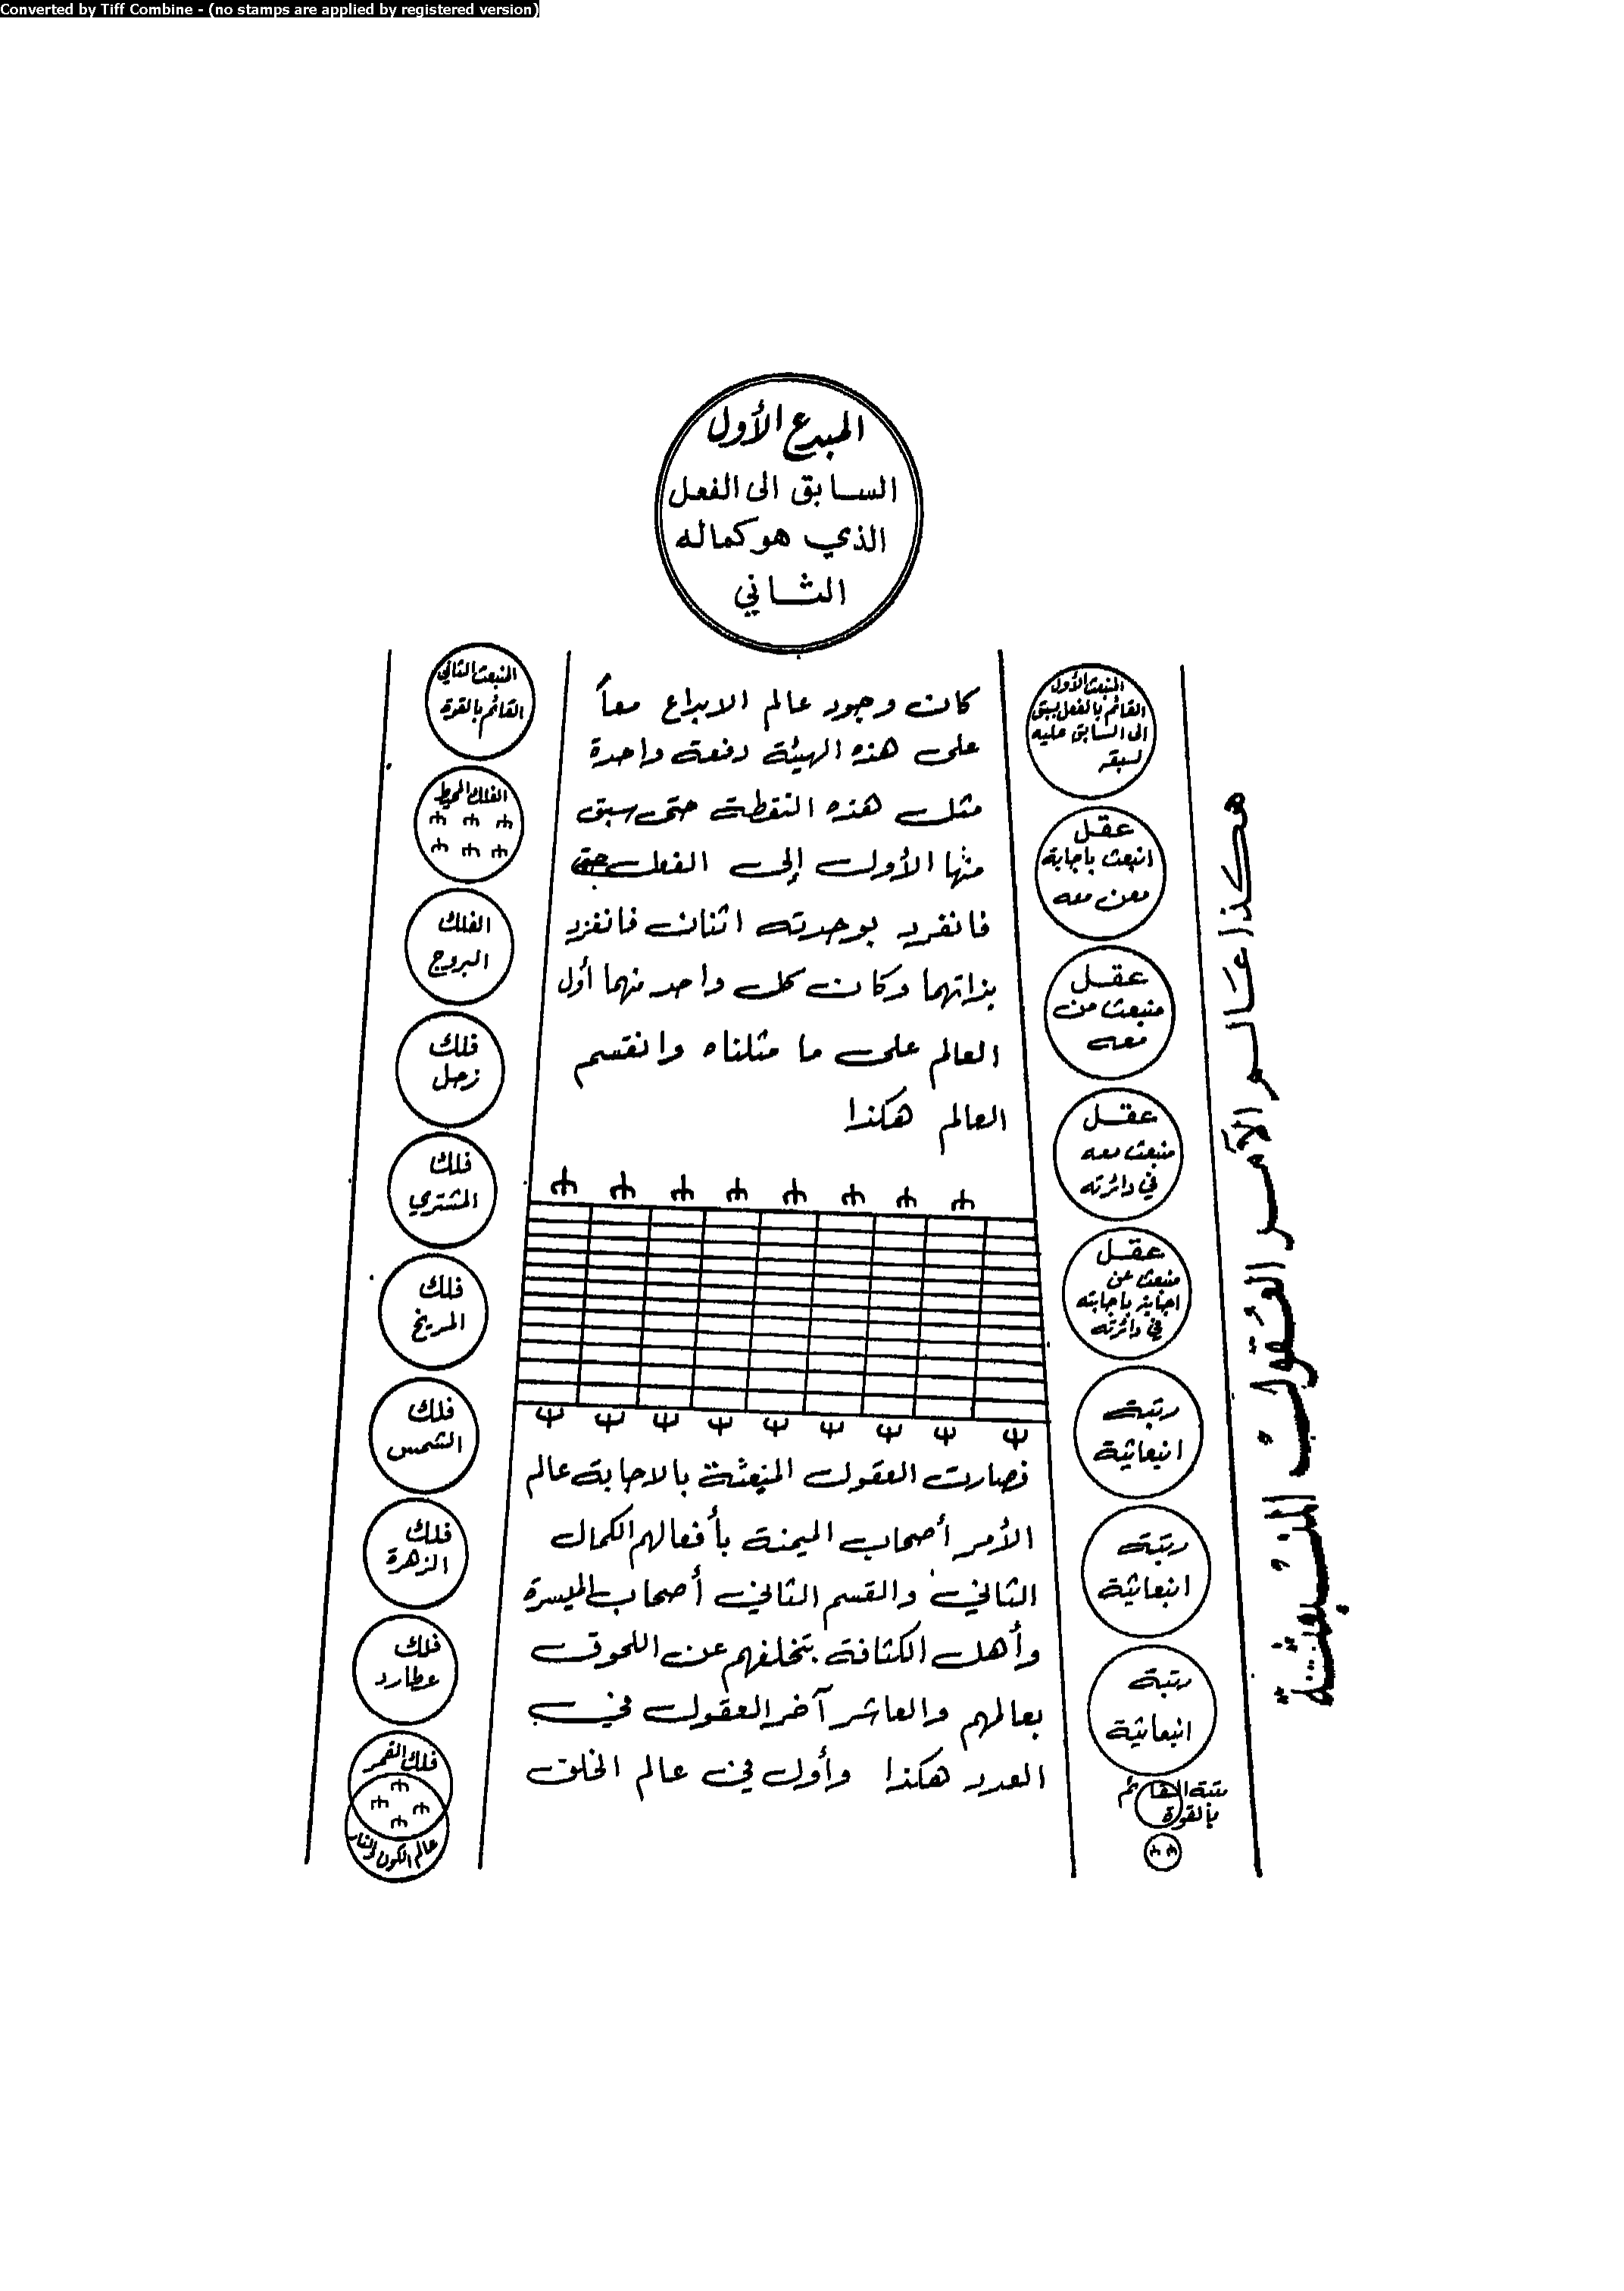 Converted by Tiff Combine - (no stamps are applied by registered version)
المبدع الأول
السابق الى الفعل
الذي هو كماله
الثاني
المنبعث الأول
القائم بالفعل يسبق
الى السابق عليه
لسبقه
عقل
انبعث باجابة
معن معه
عقل
منبعث من
معه
عقل
منبعث معه
في دائرته
عقل
منبعث عن
باجابته
في دائرته
رتبة
انبعاثية
رتبة
انبعاثية
رتبة
انبعاثية
رتبة القائم
بالقوة
هكذا عالم الأمر العقول المنبعثة
كان وجود عالم الابداع معاً
على هذه الهيئة دفعة واحدة
مثل هذه النقطة حتى سبق
منها الأول إلى الفعل
فانفرد بوحدته اثنان فانفرد
بذاتهما وكان كل واحد منهما أول
العالم على ما مثلناه وانقسم
العالم هكذا
فصارت العقول المنبعثة بالاجابة عالم
الأمر أصحاب الميمنة بأفعالهم الكمال
الثاني والقسم الثاني أصحاب الميسرة
وأهل الكثافة بتخلفهم عن اللحوق
بعالمهم والعاشر آخر العقول في
العدد هكذا وأول في عالم الخلق
المنبعث الثاني
القائم بالقوة
الفلك المحيط
الفلك
البروج
فلك
زحل
فلك
المشتري
فلك
المريخ
فلك
الشمس
فلك
الزهرة
فلك
عطارد
فلك القمر
عالم الكون